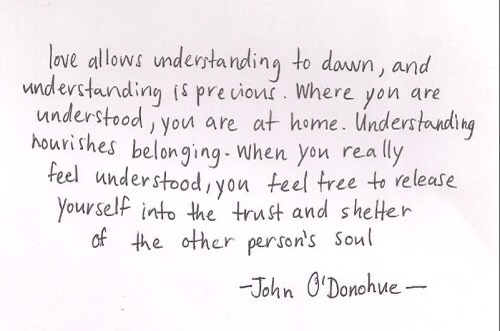 love allows understanding to dawn, and
understanding is precious. Where you are
understood, you are at home. Understanding
nourishes belonging. When you really
feel understood, you feel free to release
yourself into the trust and shelter
of the other person's soul
-John O'Donohue-